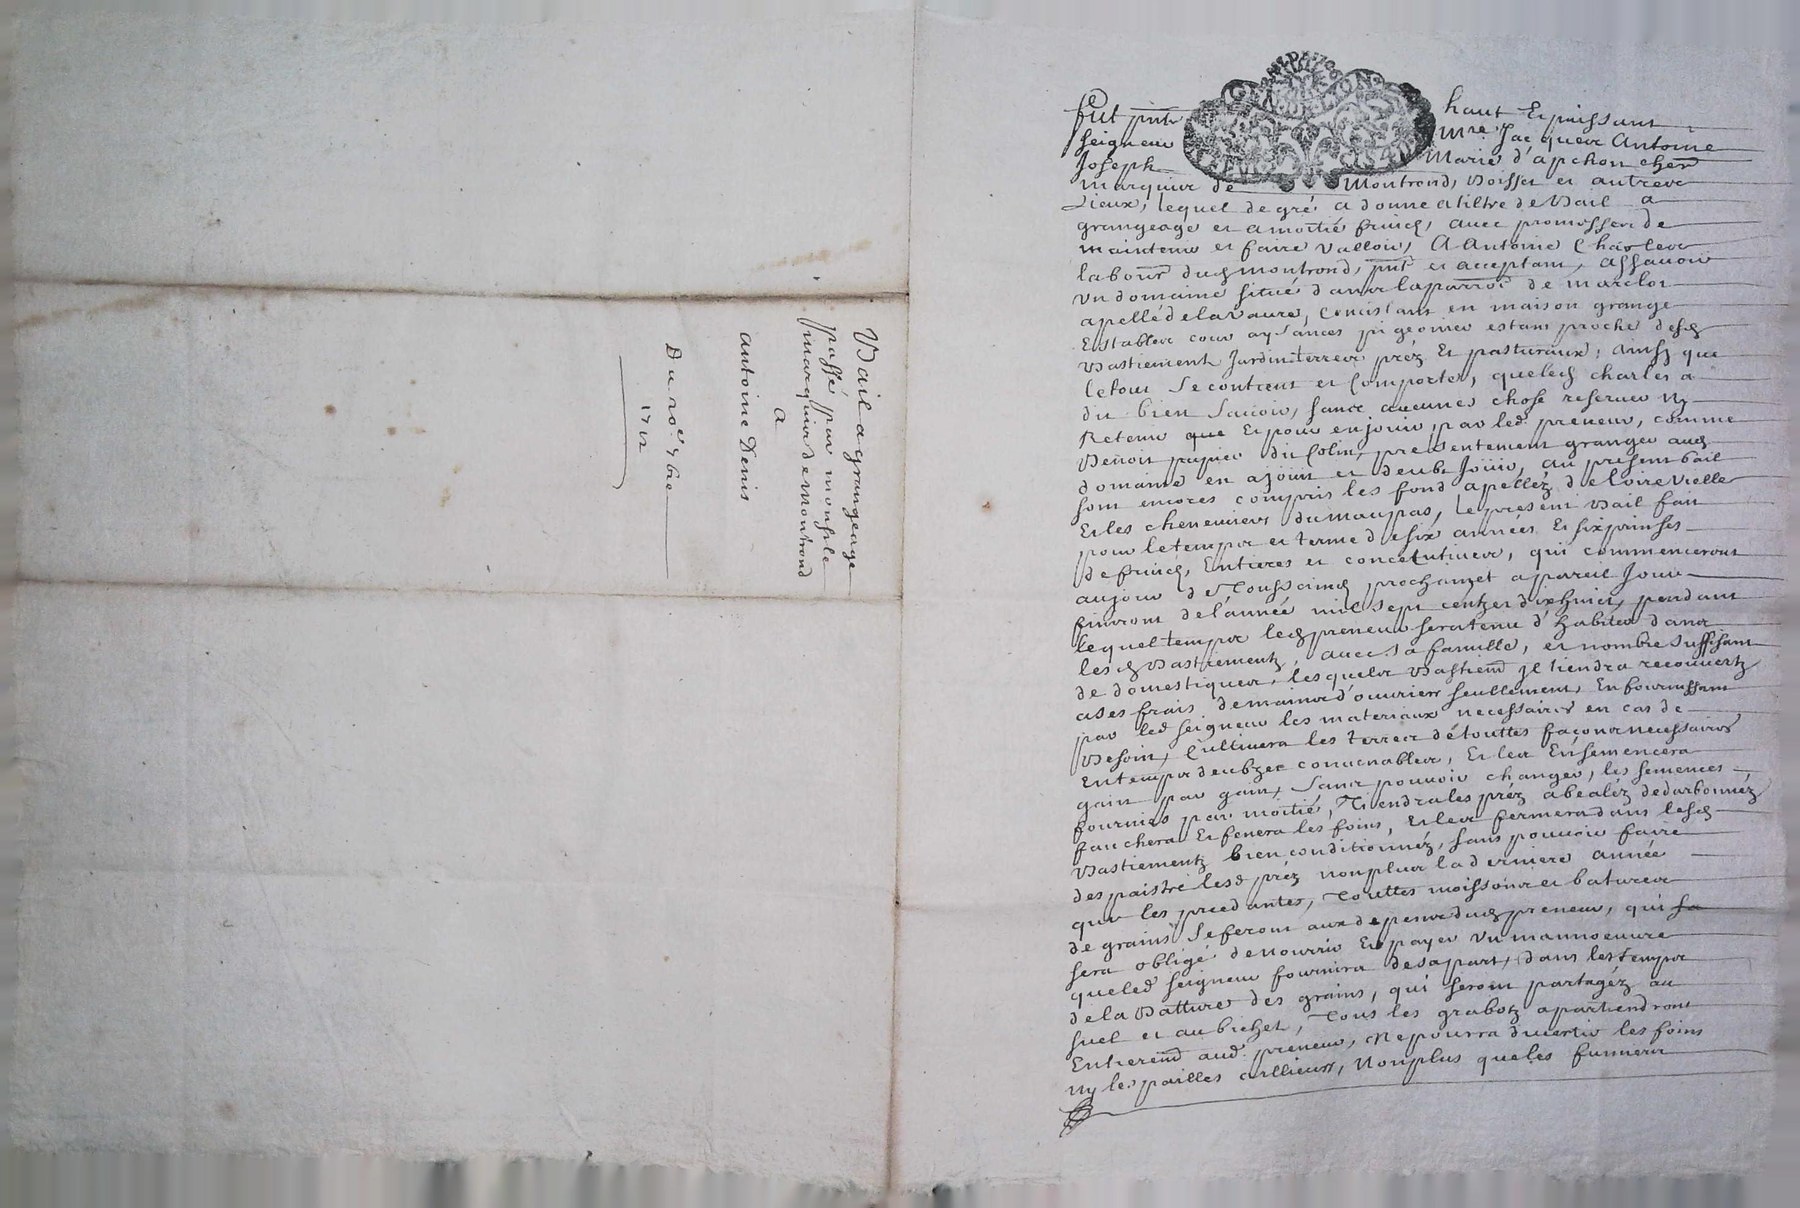 Bail a grangeage
passé par monsr le
marquis de montrond
A
antoine Denis
Du 20e 7bre
1712
fut pnt haut Et puissant
seigneur mre Jacques Antoine
Joseph Marie d'apchon cher
marquis de Montrond, Boisset et autres
Lieux, lequel de gré a donné a tiltre de Bail a
grangeage et a moitié fruicts, avec promesses de
maintenir et faire valloir, A Antoine Charles
labour dud montrond, pnt et acceptant, assavoir
un domaine situé dans la parroe de marclop
apellé de la Vaure, Concistant en maison grange
Estables cour aysances pigeonier estant proche desd
Bastiements Jardin terres préz Et pasturaux, ainsy que
le tout Se contient et Comporte, que led charles a
dit bien Scavoir, sans aucunes chose reserver ny
Retenir que Et pour en jouir par led preneur, comme
Benoit papier dit Colin, presentement granger aud
domaine en a joüit et deub Joüir, au present bail
sont encores compris les fond apelléz de Loire Vielle
Et les cheneviers du maupas, le present Bail fait
pour le temps et terme de six années Et six prinses
de fruicts, Entieres et concecutives, qui commenceront
au jour de Toussaincts prochain et a pareil Jour
finiront de l'année mil sept centz et dixhuict, pendant
lequel temps led preneur sera tenu d'habiter dans
lesd Bastiements, avec sa famille, et nombre suffisant
de domestiques, lesquels Bastiemt il tiendra recouvertz
a ses frais de mains d'ouvriers seullement, En fournissant
par led seigneur les materiaux necessaires en cas de
Besoin, Cultivera les terres de touttes façons necessaires
En temps deub et convenables, Et les Ensemencera
gain par gain, Sans pouvoir changer, les semences
fournies par moitié, Tiendra les préz abealéz dedarbonnéz
fauchera Et fenera les foins, Et les fermera dans lesd
Bastiements bien conditionnéz, sans pouvoir faire
des paistre lesd préz non plus la derniere année
que les precedantes, Touttes moissons et batures
de grains Se feront aux depens dud preneur, qui
sera obligé de nourrir Et payer un mannoeuvre
que led seigneur fournira de sa part, dans les temps
de la Batture des grains, qui seront partagéz au
suel et au bichet, Tous les grabotz apartiendront
Entieremt aud preneur, Ne pourra divertir les foins
ny les pailles aillieurs, Non plus que les fumiers